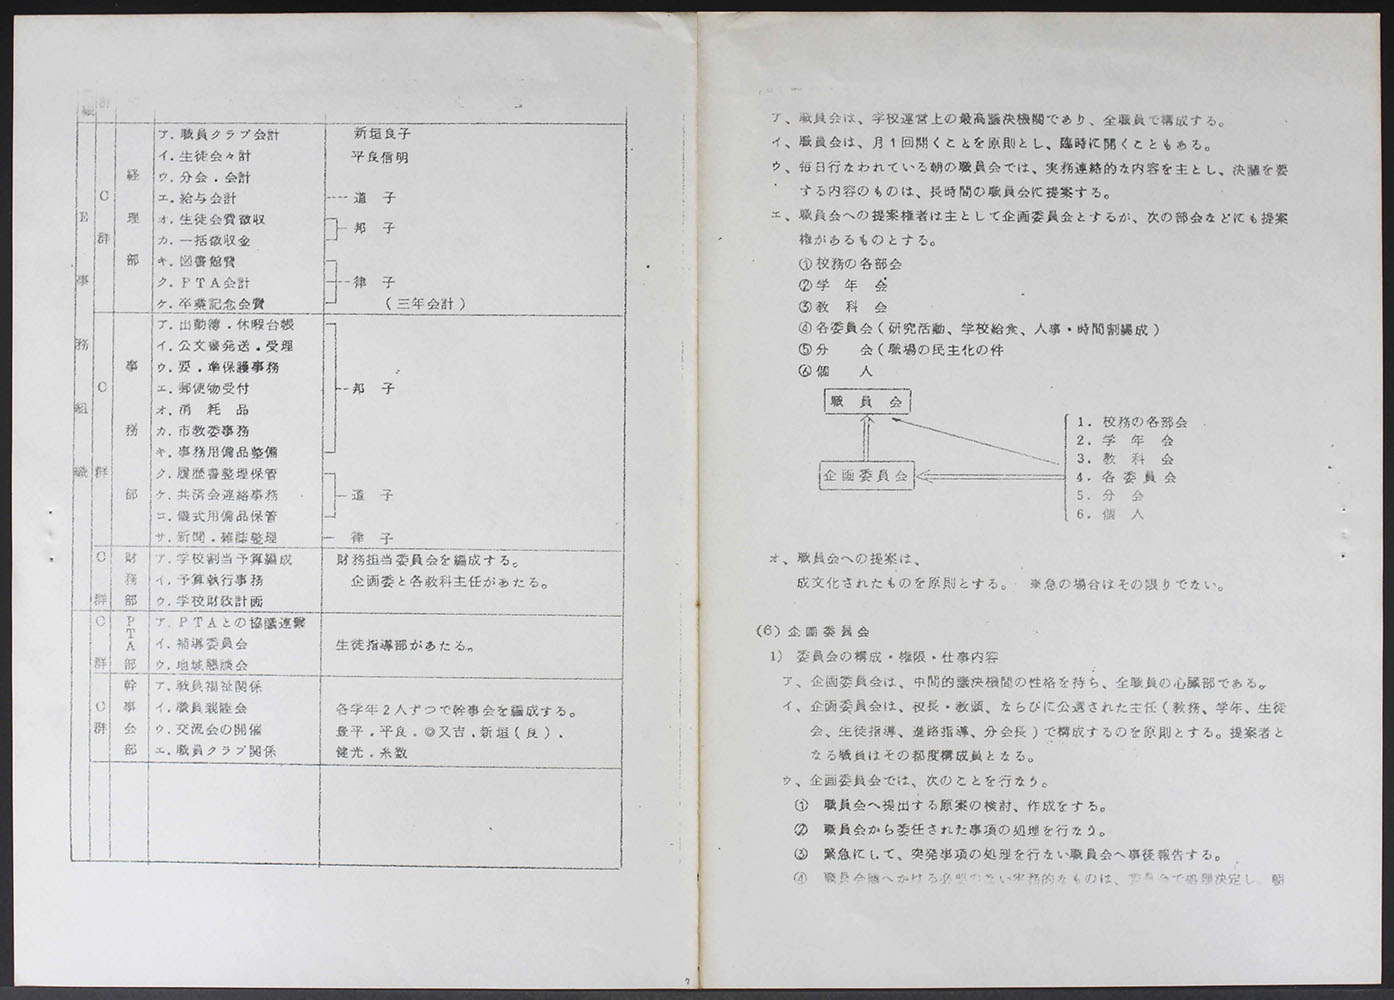 E事務組織
C群
経理部
ア.職員クラブ会計 新垣良子
イ.生徒会々計 平良信明
ウ.分会.会計
エ.給与会計 道子
オ.生徒会費徴収 邦子
カ.一括徴収金
キ.図書館費
ク.PTA会計 律子
ケ.卒業記念会費 (三年会計)
C群
事務部
ア.出勤簿.休暇台帳
イ.公文書発送.受理
ウ.要.準保護事務
エ.郵便物受付 邦子
オ.消耗品
カ.市教委事務
キ.事務用備品整備
ク.履歴書整理保管
ケ.共済会連絡事務 道子
コ.儀式用備品保管
サ.新聞.雑誌整理 律子
C群
財務部
ア.学校割当予算編成 財務担当委員会を編成する。
イ.予算執行事務 企画委と各教科主任があたる。
ウ.学校財政計画
C群
PTA部
ア.PTAとの協議連繋
イ.補導委員会 生徒指導部があたる。
ウ.地域懇談会
C群
幹事会部
ア.職員福祉関係
イ.職員親睦会 各学年2人ずつで幹事会を編成する。
ウ.交流会の開催 豊平.平良.◎又吉.新垣(良).
エ.職員クラブ関係 健光.糸数
7
ア、職員会は、学校運営上の最高議決機関であり、全職員で構成する。
イ、職員会は、月1回開くことを原則とし、臨時に開くこともある。
ウ、毎日行なわれている朝の職員会では、実務連絡的な内容を主とし、決議を要
する内容のものは、長時間の職員会に提案する。
エ、職員会への提案権者は主として企画委員会とするが、次の部会などにも提案
権があるものとする。
①校務の各部会
②学年会
③教科会
④各委員会(研究活動、学校給食、人事・時間割編成)
⑤分会(職場の民主化の件
⑥個人
職員会
企画委員会
1.校務の各部会
2.学年会
3.教科会
4.各委員会
5.分会
6.個人
オ、職員会への提案は、
成文化されたものを原則とする。 ※急の場合はその限りでない。
(6)企画委員会
1) 委員会の構成・権限・仕事内容
ア、企画委員会は、中間的議決機関の性格を持ち、全職員の心臓部である。
イ、企画委員会は、校長・教頭、ならびに公選された主任(教務、学年、生徒
会、生徒指導、進路指導、分会長)で構成するのを原則とする。提案者と
なる職員はその都度構成員となる。
ウ、企画委員会では、次のことを行なう。
① 職員会へ提出する原案の検討、作成をする。
② 職員会から委任された事項の処理を行なう。
③ 緊急にして、突発事項の処理を行ない職員会へ事後報告する。
④ 職員会議へかける必要のない実務的なものは、委員会で処理決定し、朝